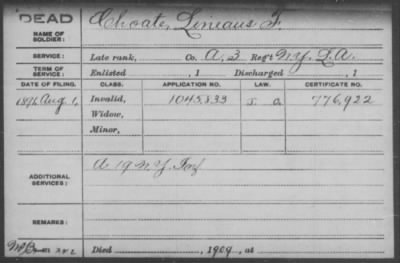 DEAD
NAME OF SOLDIER: Choate, Linieaus F.
SERVICE: Late rank, Co. A, 3 Reg't N.Y. L.A.
TERM OF SERVICE: Enlisted , 1 Discharged , 1
DATE OF FILING. CLASS. APPLICATION NO. LAW. CERTIFICATE NO.
Aug 1, Invalid, 1045,833 776,922
Widow,
Minor,
ADDITIONAL SERVICES: A 19 N Y Inf
REMARKS:
Died , 1909, at